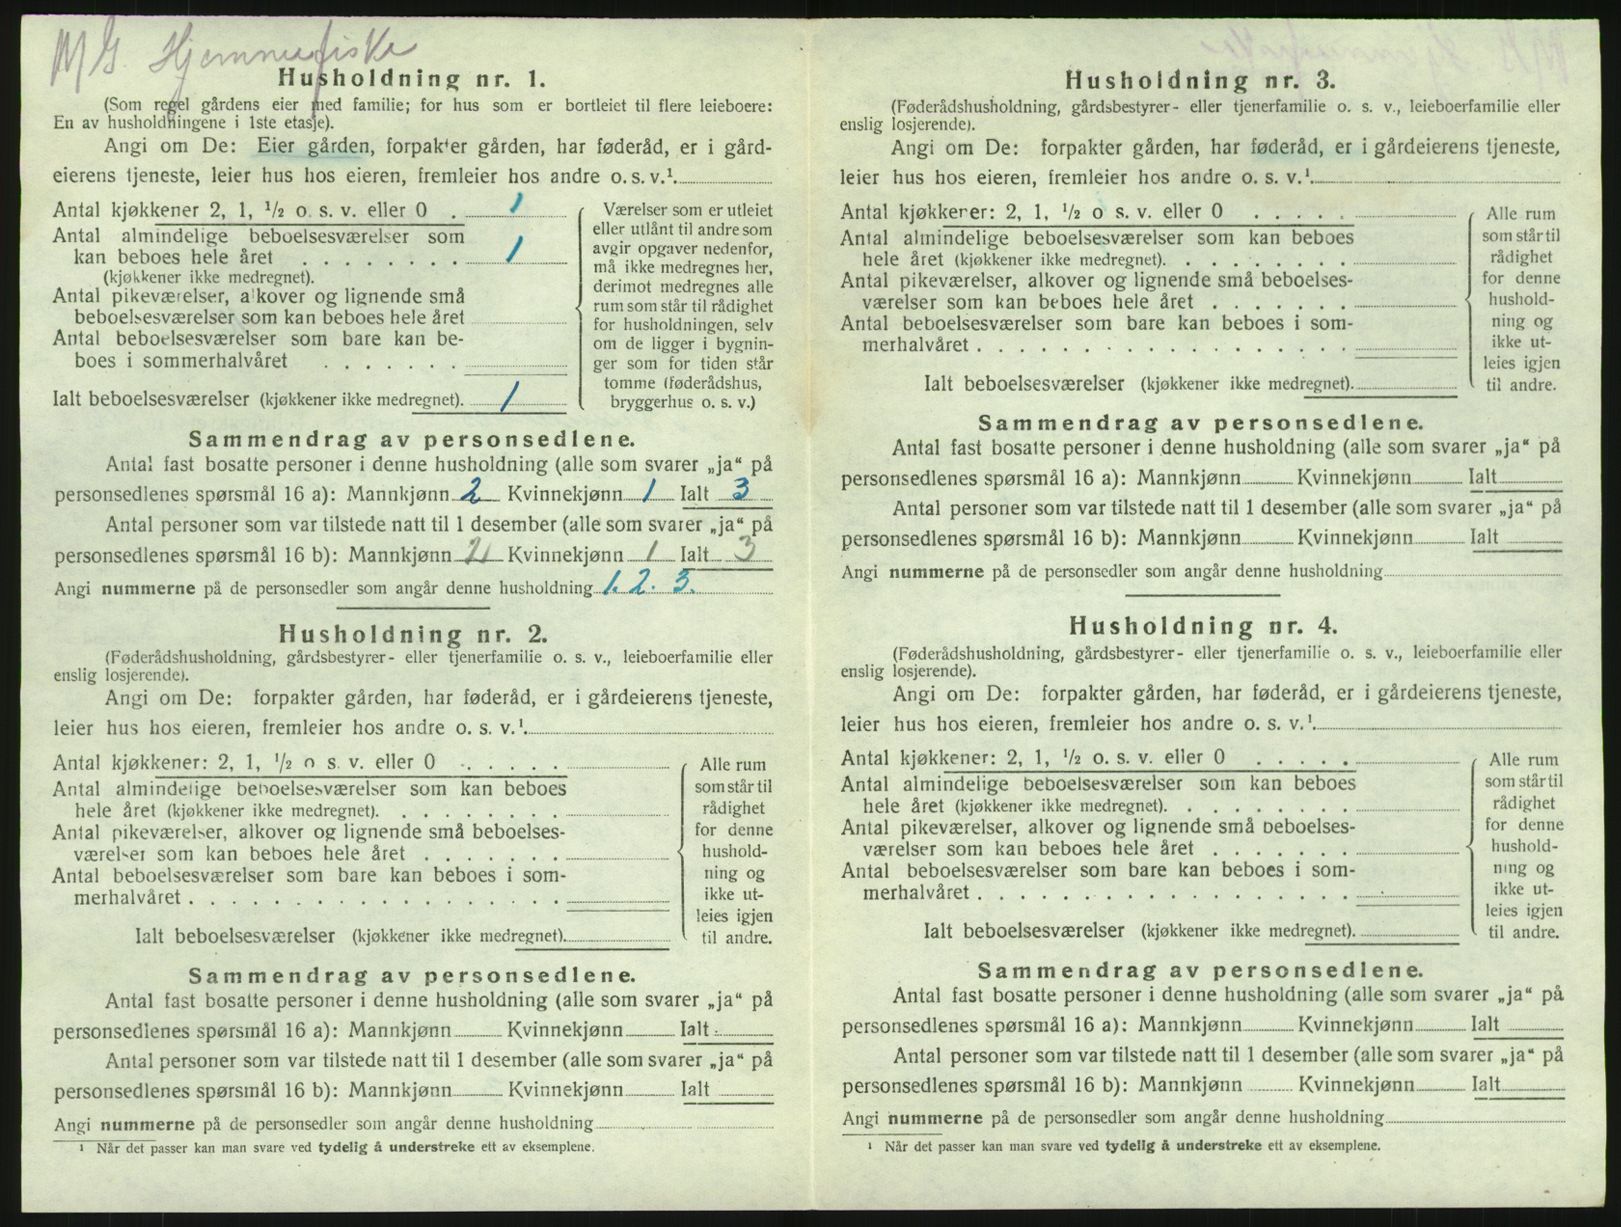 M G. Hjemmefiske
Husholdning nr. 1.
(Som regel gårdens eier med familie; for hus som er bortleiet til flere leieboere:
En av husholdningene i 1ste etasje).
Angi om De: Eier gården, forpakter gården, har føderåd, er i gård-
eierens tjeneste, leier hus hos eieren, fremleier hos andre o. s. v.¹
Antal kjøkkener 2, 1, ½ o. s. v. eller 0 . 1
Antal almindelige beboelsesværelser som
kan beboes hele året . . . . . . . . 1
(kjøkkener ikke medregnet).
Antal pikeværelser, alkover og lignende små
beboelsesværelser som kan beboes hele året
Antal beboelsesværelser som bare kan be-
boes i sommerhalvåret . . . . . . .
Ialt beboelsesværelser (kjøkkener ikke medregnet). 1
Værelser som er utleiet
eller utlånt til andre som
avgir opgaver nedenfor,
må ikke medregnes her,
derimot medregnes alle
rum som står til rådighet
for husholdningen, selv
om de ligger i bygnin-
ger som for tiden står
tomme (føderådshus,
bryggerhus o. s. v.)
Sammendrag av personsedlene.
Antal fast bosatte personer i denne husholdning (alle som svarer „ja“ på
personsedlenes spørsmål 16 a): Mannkjønn 2 Kvinnekjønn 1 Ialt 3
Antal personer som var tilstede natt til 1 desember (alle som svarer „ja“ på
personsedlenes spørsmål 16 b): Mannkjønn 2 Kvinnekjønn 1 Ialt 3
Angi nummerne på de personsedler som angår denne husholdning 1. 2. 3.
Husholdning nr. 2.
(Føderådshusholdning, gårdsbestyrer- eller tjenerfamilie o. s. v., leieboerfamilie eller
enslig losjerende).
Angi om De: forpakter gården, har føderåd, er i gårdeierens tjeneste,
leier hus hos eieren, fremleier hos andre o. s. v.¹
Antal kjøkkener: 2, 1, ½ o. s. v. eller 0 . . . . .
Antal almindelige beboelsesværelser som kan beboes
hele året (kjøkkener ikke medregnet). . . . . . . .
Antal pikeværelser, alkover og lignende små beboelses-
værelser som kan beboes hele året . . . . . . .
Antal beboelsesværelser som bare kan beboes i som-
merhalvåret . . . . . . . . . . . . . . . . . .
Ialt beboelsesværelser (kjøkkener ikke medregnet).
Alle rum
som står til
rådighet
for denne
hushold-
ning og
ikke ut-
leies igjen
til andre.
Sammendrag av personsedlene.
Antal fast bosatte personer i denne husholdning (alle som svarer „ja“ på
personsedlenes spørsmål 16 a): Mannkjønn Kvinnekjønn Ialt
Antal personer som var tilstede natt til 1 desember (alle som svarer „ja“ på
personsedlenes spørsmål 16 b): Mannkjønn Kvinnekjønn Ialt
Angi nummerne på de personsedler som angår denne husholdning
¹ Når det passer kan man svare ved tydelig å understreke ett av eksemplene.
Husholdning nr. 3.
(Føderådshusholdning, gårdsbestyrer- eller tjenerfamilie o. s. v., leieboerfamilie eller
enslig losjerende).
Angi om De: forpakter gården, har føderåd, er i gårdeierens tjeneste,
leier hus hos eieren, fremleier hos andre o. s. v.¹
Antal kjøkkener: 2, 1, ½ o s. v. eller 0 . . . . .
Antal almindelige beboelsesværelser som kan beboes
hele året (kjøkkener ikke medregnet). . . . . . . .
Antal pikeværelser, alkover og lignende små beboelses-
værelser som kan beboes hele året . . . . . . .
Antal beboelsesværelser som bare kan beboes i som-
merhalvåret . . . . . . . . . . . . . . . . . .
Ialt beboelsesværelser (kjøkkener ikke medregnet).
Alle rum
som står til
rådighet
for denne
hushold-
ning og
ikke ut-
leies igjen
til andre.
Sammendrag av personsedlene.
Antal fast bosatte personer i denne husholdning (alle som svarer „ja“ på
personsedlenes spørsmål 16 a): Mannkjønn Kvinnekjønn Ialt
Antal personer som var tilstede natt til 1 desember (alle som svarer „ja“ på
personsedlenes spørsmål 16 b): Mannkjønn Kvinnekjønn Ialt
Angi nummerne på de personsedler som angår denne husholdning
Husholdning nr. 4.
(Føderådshusholdning, gårdsbestyrer- eller tjenerfamilie o. s. v., leieboerfamilie eller
enslig losjerende).
Angi om De: forpakter gården, har føderåd, er i gårdeierens tjeneste,
leier hus hos eieren, fremleier hos andre o. s. v.¹
Antal kjøkkener: 2, 1, ½ o. s. v. eller 0 . . . . .
Antal almindelige beboelsesværelser som kan beboes
hele året (kjøkkener ikke medregnet). . . . . . . .
Antal pikeværelser, alkover og lignende små beboelses-
værelser som kan beboes hele året . . . . . . .
Antal beboelsesværelser som bare kan beboes i som-
merhalvåret . . . . . . . . . . . . . . . . . .
Ialt beboelsesværelser (kjøkkener ikke medregnet).
Alle rum
som står til
rådighet
for denne
hushold-
ning og
ikke ut-
leies igjen
til andre.
Sammendrag av personsedlene.
Antal fast bosatte personer i denne husholdning (alle som svarer „ja“ på
personsedlenes spørsmål 16 a): Mannkjønn Kvinnekjønn Ialt
Antal personer som var tilstede natt til 1 desember (alle som svarer „ja“ på
personsedlenes spørsmål 16 b): Mannkjønn Kvinnekjønn Ialt
Angi nummerne på de personsedler som angår denne husholdning
¹ Når det passer kan man svare ved tydelig å understreke ett av eksemplene.